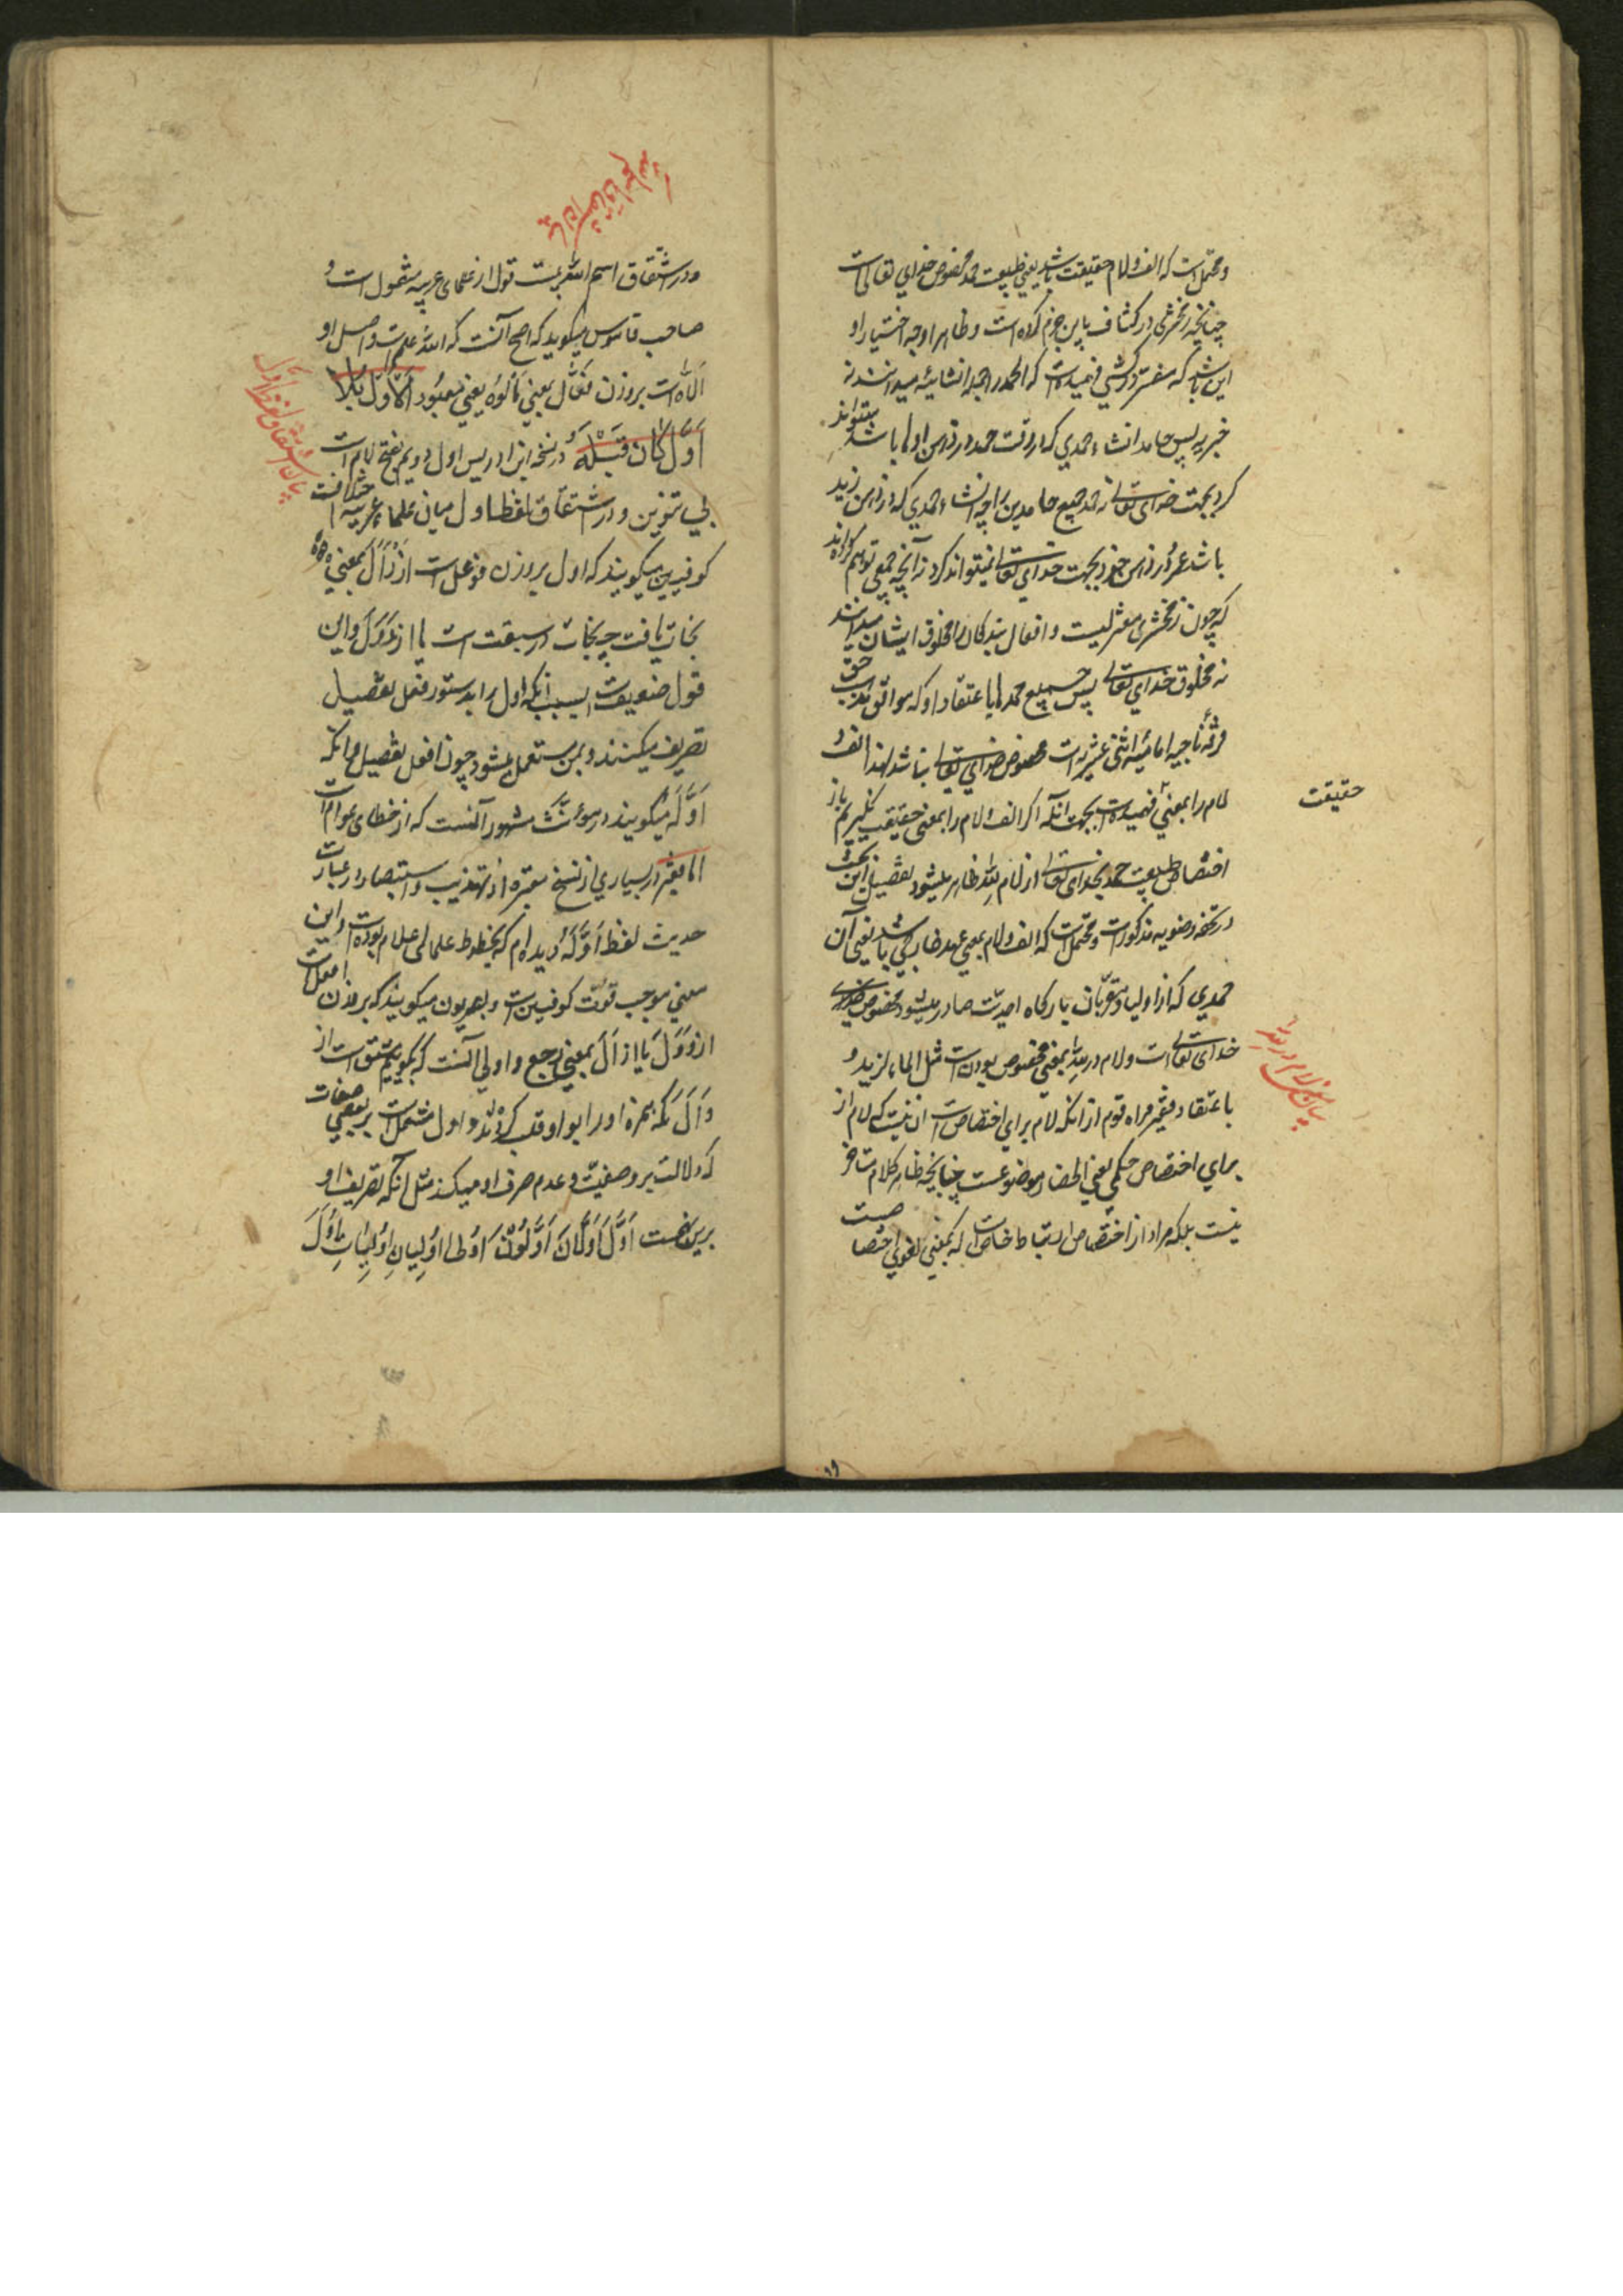 و محتمل است که الف و لام حقیقت باشد یعنی طبیعت حمد مخصوص خدای تعالی است
چنانچه زمخشری در کشاف باین جزم کرده است و ظاهرا وجه اختیار او
این باشد که مفسر دو کشی فهمیده است که الحمد را جمله انشائیه میدانند نه
خبریه پس حامد انشاء حمدی که در وقت حمد در ذهن او باشد میتواند
کرد بجهت خدای تعالی نه حمد جمیع حامدین را چه انشاء حمدی که در ذهن زید
باشد عمرو در ذهن خود بجهت خدای تعالی نمیتواند کرد نه آنچه جمعی توهم کرده‌اند
که چون زمخشری معتزلیست و افعال بندگان را مخلوق ایشان میدانند
نه مخلوق خدای تعالی پس جمیع محمدها باعتقاد او که موافق مذهب حق
فرقه ناجیه امامیه اثنی عشریه است مخصوص خدای تعالی نباشد لهذا الف و
لام را بمعنی فهمیده است بجهت آنکه اگر الف و لام را بمعنی حقیقت نگیریم باز
حقیقت
اختصاص طبیعت حمد بخدای تعالی از لام لله ظاهر میشود تفصیل این بحث
در تحفه رضویه مذکور است و محتمل است که الف و لام بمعنی عهد خارجی باشد یعنی آن
حمدی که از اولیا و مقربان بارگاه احدیت صادر میشود مخصوص
خدای تعالی است و لام در لله بمعنی مخصوص بودن است مثل المال لزید و
بیان معنی لام در لله
باعتقاد فقیر مراد قوم از آنکه لام برای اختصاص است آن نیست که لام از
برای اختصاص حکمی یعنی انحصار موضوعست چنانچه ظاهر کلام
نیست بلکه مراد از اختصاص ارتباط خاص است که بمعنی لغوی اختصاصیت
و در اشتقاق اسم الله بیست قول از علمای عربیه منقول است و
صاحب قاموس میگوید که اصح آنست که الله علم است و اصل او
الاه است بروزن فعال بمعنی مألوه یعنی معبود الاول بلا
بیان اشتقاق لفظ اول
اول کان قبله و در نسخه ابن ادریس اول دویم بفتح لام است
بی تنوین و در اشتقاق لفظ اول میان علماء عربیه خلافست
کوفیین میگویند که اول بروزن فوعل است از وأل بمعنی
نجات یافت چه نجات در سبقت است یا از وول و این
قول ضعیفست بسبب آنکه اول را بدستور فعل تفضیل
تصریف میکنند و بمن مستعمل میشود چون افعل تفضیل و آنکه
اوله میگویند در مؤنث مشهور آنست که از خطای عوام است
اما فقیر در بسیاری از نسخ معتبره از تهذیب و استبصار در عبارت
حدیث لفظ اوله دیده‌ام که بخطوط علمای اعلام بوده است و این
معنی موجب قوت کوفیین است و بصریون میگویند که بروزن افعل است
از وول یا از أال بمعنی رجع و اولی آنست که بگوییم مشتق است از
وأل که همزه او را بواو قلب کرده‌اند و اول مشتمل است بر بعضی صفات
که دلالت بر وصفیت و عدم صرف او میکند مثل آنکه تصریف او
برین نهجست اول اولان اولون اولی اولیان اولیات و اول